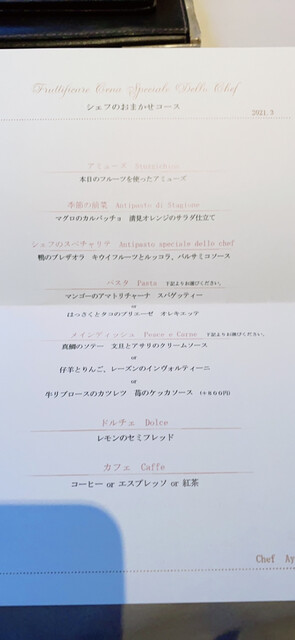 Fruttificare Cena Speciale Dello Chef
シェフのおまかせコース
2021.3
アミューズ Stuzzichino
本日のフルーツを使ったアミューズ
季節の前菜 Antipasto di Stagione
マグロのカルパッチョ 清見オレンジのサラダ仕立て
シェフのスペチャリテ Antipasto speciale dello chef
鴨のブレザオラ キウイフルーツとルッコラ、バルサミコソース
パスタ Pasta 下記よりお選びください。
マンゴーのアマトリチャーナ スパゲッティー
or
はっさくとタコのプリエーゼ オレキエッテ
メインディッシュ Pesce o Carne 下記よりお選びください。
真鯛のソテー 文旦とアサリのクリームソース
or
仔羊とりんご、レーズンのインヴォルティーニ
or
牛リブロースのカツレツ 苺のケッカソース (+800円)
ドルチェ Dolce
レモンのセミフレッド
カフェ Caffe
コーヒー or エスプレッソ or 紅茶
Chef Ay